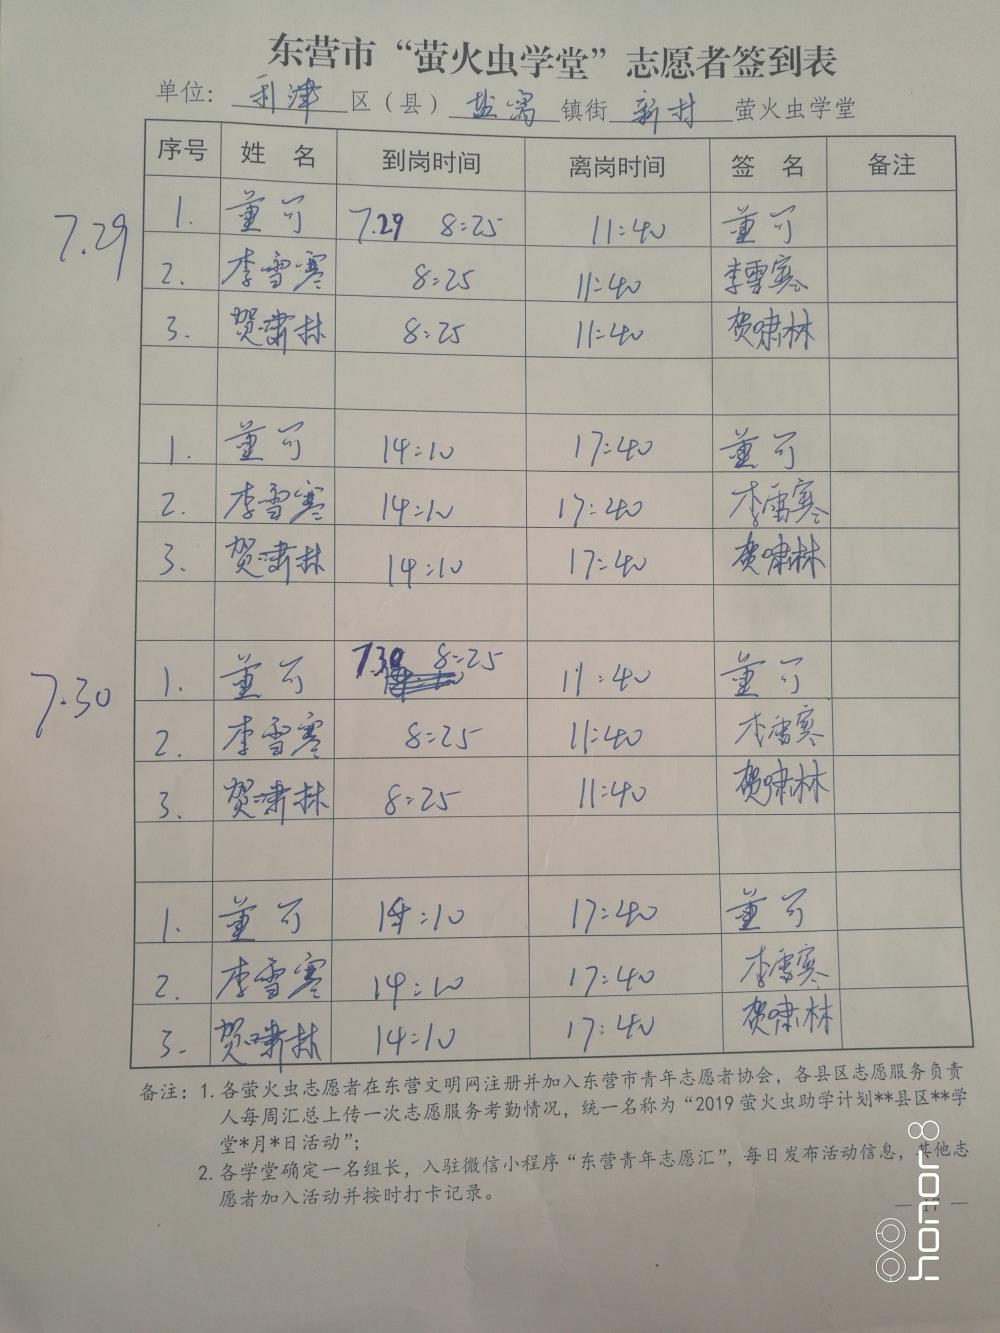 东营市“萤火虫学堂”志愿者签到表
单位：利津区（县）盐窝镇街新村萤火虫学堂
序号 姓 名 到岗时间 离岗时间 签 名 备注
7.29
1. 董可 7.29 8:25 11:40 董可
2. 李雪寒 8:25 11:40 李雪寒
3. 贺啸林 8:25 11:40 贺啸林
1. 董可 14:10 17:40 董可
2. 李雪寒 14:10 17:40 李雪寒
3. 贺啸林 14:10 17:40 贺啸林
7.30
1. 董可 7.30 8:25 11:40 董可
2. 李雪寒 8:25 11:40 李雪寒
3. 贺啸林 8:25 11:40 贺啸林
1. 董可 14:10 17:40 董可
2. 李雪寒 14:10 17:40 李雪寒
3. 贺啸林 14:10 17:40 贺啸林
备注：1. 各萤火虫志愿者在东营文明网注册并加入东营市青年志愿者协会，各县区志愿服务负责
人每周汇总上传一次志愿服务考勤情况，统一名称为“2019 萤火虫助学计划**县区**学
堂*月*日活动”；
2. 各学堂确定一名组长，入驻微信小程序“东营青年志愿汇”，每日发布活动信息，其他志
愿者加入活动并按时打卡记录。
— 17 —
honor 8